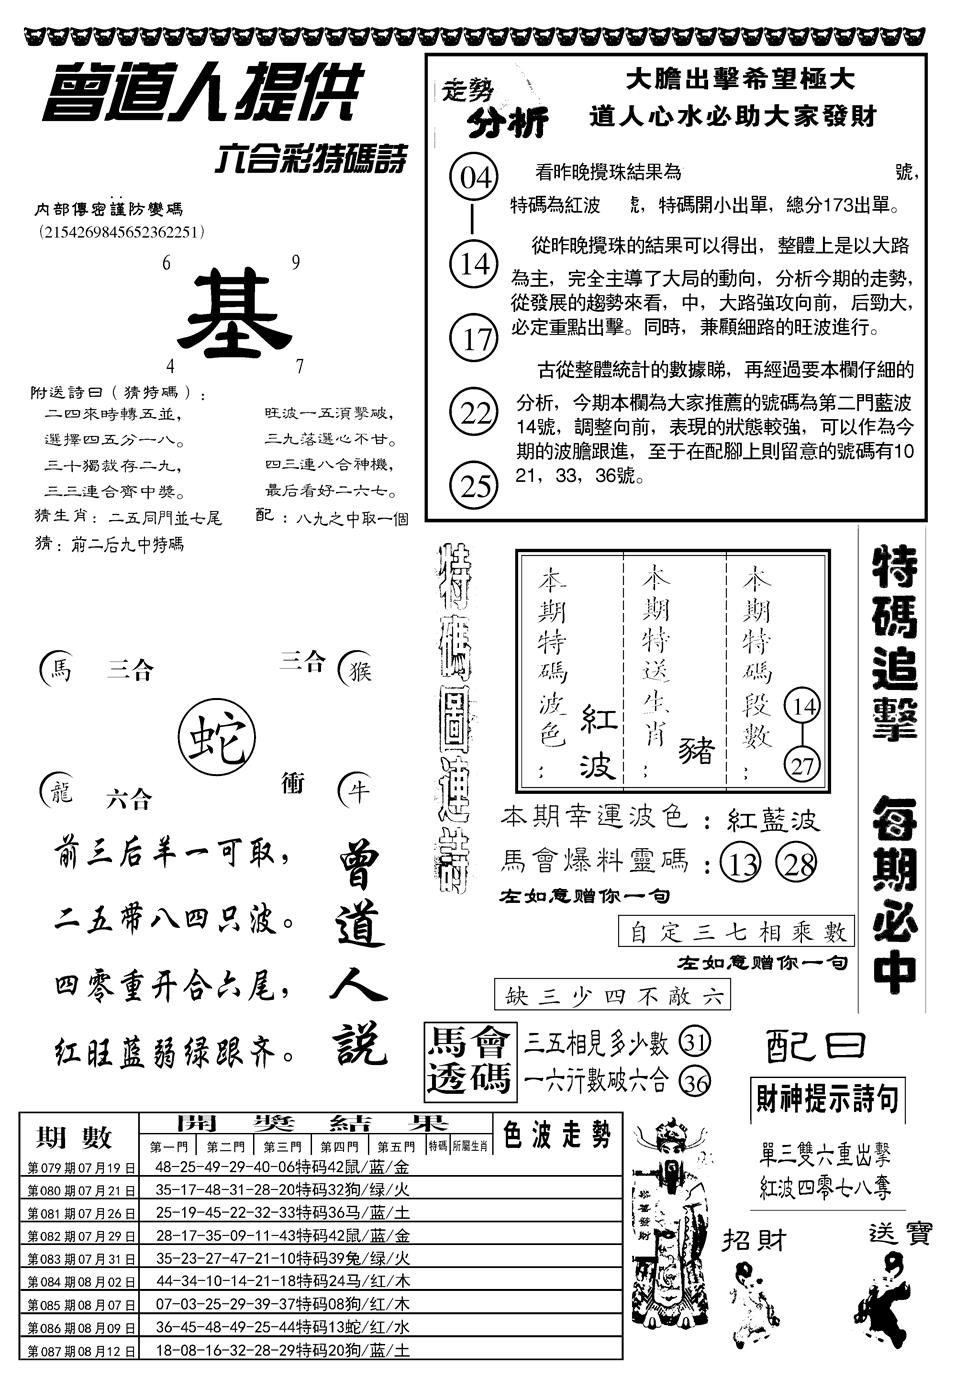 曾道人提供
六合彩特碼詩
内部傳密謹防變碼
(2154269845652362251)
6 9
基
4 7
附送詩曰（猜特碼）：
二四來時轉五並，
選擇四五分一八。
三十獨裁存二九，
三三連合齊中獎。
旺波一五須擊破，
三九落選心不甘。
四三連八合神機，
最后看好二六七。
猜生肖：二五同門並七尾
配：八九之中取一個
猜：前二后九中特碼
走勢
分析
大膽出擊希望極大
道人心水必助大家發財
04
14
17
22
25
看昨晚攪珠結果為 號，
特碼為紅波 號，特碼開小出單，總分173出單。
從昨晚攪珠的結果可以得出，整體上是以大路
為主，完全主導了大局的動向，分析今期的走勢，
從發展的趨勢來看，中，大路強攻向前，后勁大，
必定重點出擊。同時，兼顧細路的旺波進行。
古從整體統計的數據睇，再經過要本欄仔細的
分析，今期本欄為大家推薦的號碼為第二門藍波
14號，調整向前，表現的狀態較強，可以作為今
期的波膽跟進，至于在配腳上則留意的號碼有10
21，33，36號。
馬 三合
三合 猴
蛇
龍 六合
衝 牛
前三后羊一可取，
二五带八四只波。
四零重开合六尾，
红旺蓝弱绿跟齐。
曾道人説
特碼圖連詩
本期特碼波色：
紅波
本期特送生肖：
豬
本期特碼段數：
14
27
本期幸運波色：紅藍波
馬會爆料靈碼：13 28
左如意赠你一句
自定三七相乘數
左如意赠你一句
缺三少四不敵六
特碼追擊 每期必中
馬會
透碼
三五相見多少數 31
一六行數破六合 36
配曰
財神提示詩句
單三雙六重出擊
紅波四零七八奪
恭喜發財
招財
送寶
期數 開獎結果 色波走勢
第一門 第二門 第三門 第四門 第五門 特碼 所屬生肖
第079期07月19日 48-25-49-29-40-06特码42鼠/蓝/金
第080期07月21日 35-17-48-31-28-20特码32狗/绿/火
第081期07月26日 25-19-45-22-32-33特码36马/蓝/土
第082期07月29日 28-17-35-09-11-43特码42鼠/蓝/金
第083期07月31日 35-23-27-47-21-10特码39兔/绿/火
第084期08月02日 44-34-10-14-21-18特码24马/红/木
第085期08月07日 07-03-25-29-39-37特码08狗/红/木
第086期08月09日 36-45-48-49-25-44特码13蛇/红/水
第087期08月12日 18-08-16-32-28-29特码20狗/蓝/土